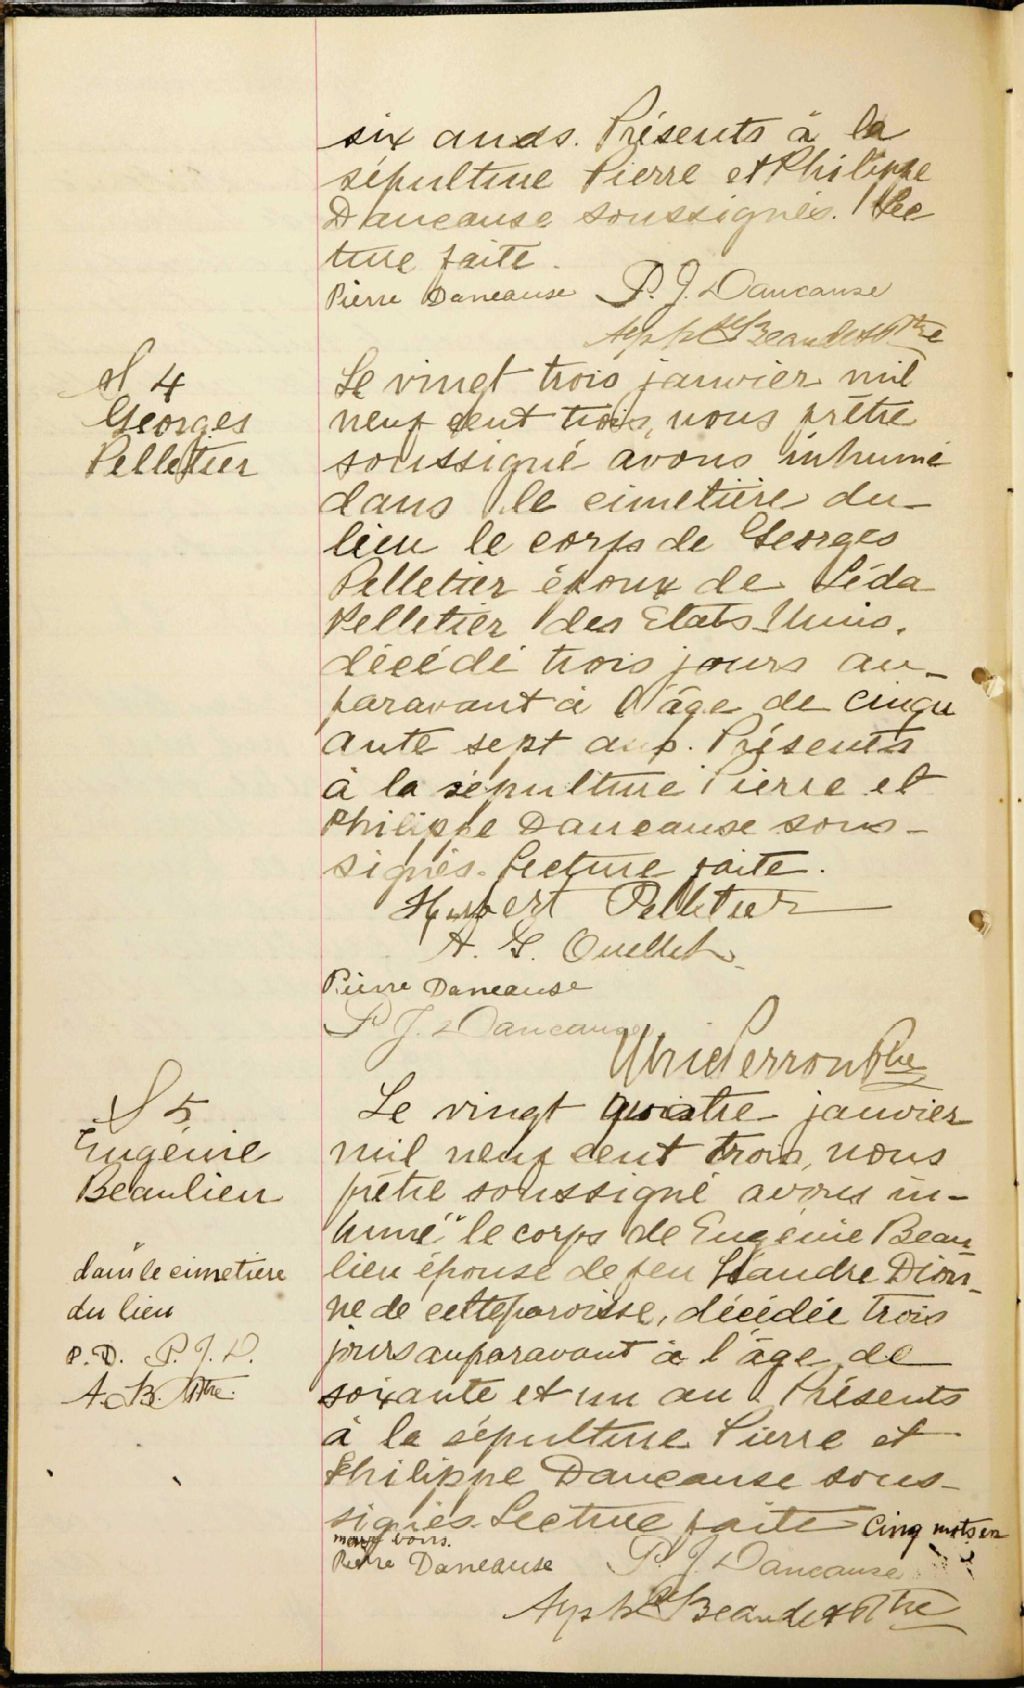 six ans. Présents à la
sépulture Pierre et Philippe
Dancause soussignés. Lec
ture faite.
Pierre Dancause P. J. Dancause
Ptre
S 4
Georges
Pelletier
Le vingt trois janvier mil
neuf cent trois, nous prêtre
soussigné avons inhumé
dans le cimetière du
lieu le corps de Georges
Pelletier époux de Léda
Pelletier des Etats-Unis,
décédé trois jours au-
paravant à l'âge de cinqu
ante sept ans. Présents
à la sépulture Pierre et
Philippe Dancause sous-
signés. Lecture faite.
Hubert Pelletier
A. G. Ouellet
Pierre Dancause
P. J. Dancause
Perron Ptre
S 5
Eugénie
Beaulieu
Le vingt quatre janvier
mil neuf cent trois, nous
prêtre soussigné avons in-
humé " le corps de Eugénie Beau
lieu épouse de feu Léandre Dion-
ne de cette paroisse, décédée trois
jours auparavant à l'âge de
soixante et un an. Présents
à la sépulture Pierre et
Philippe Dancause sous-
signés. Lecture faite Cinq mots en
marge bons.
Pierre Dancause P. J. Dancause
Ptre
" dans le cimetière
du lieu
P. D. P. J. D.
A. B. Ptre.